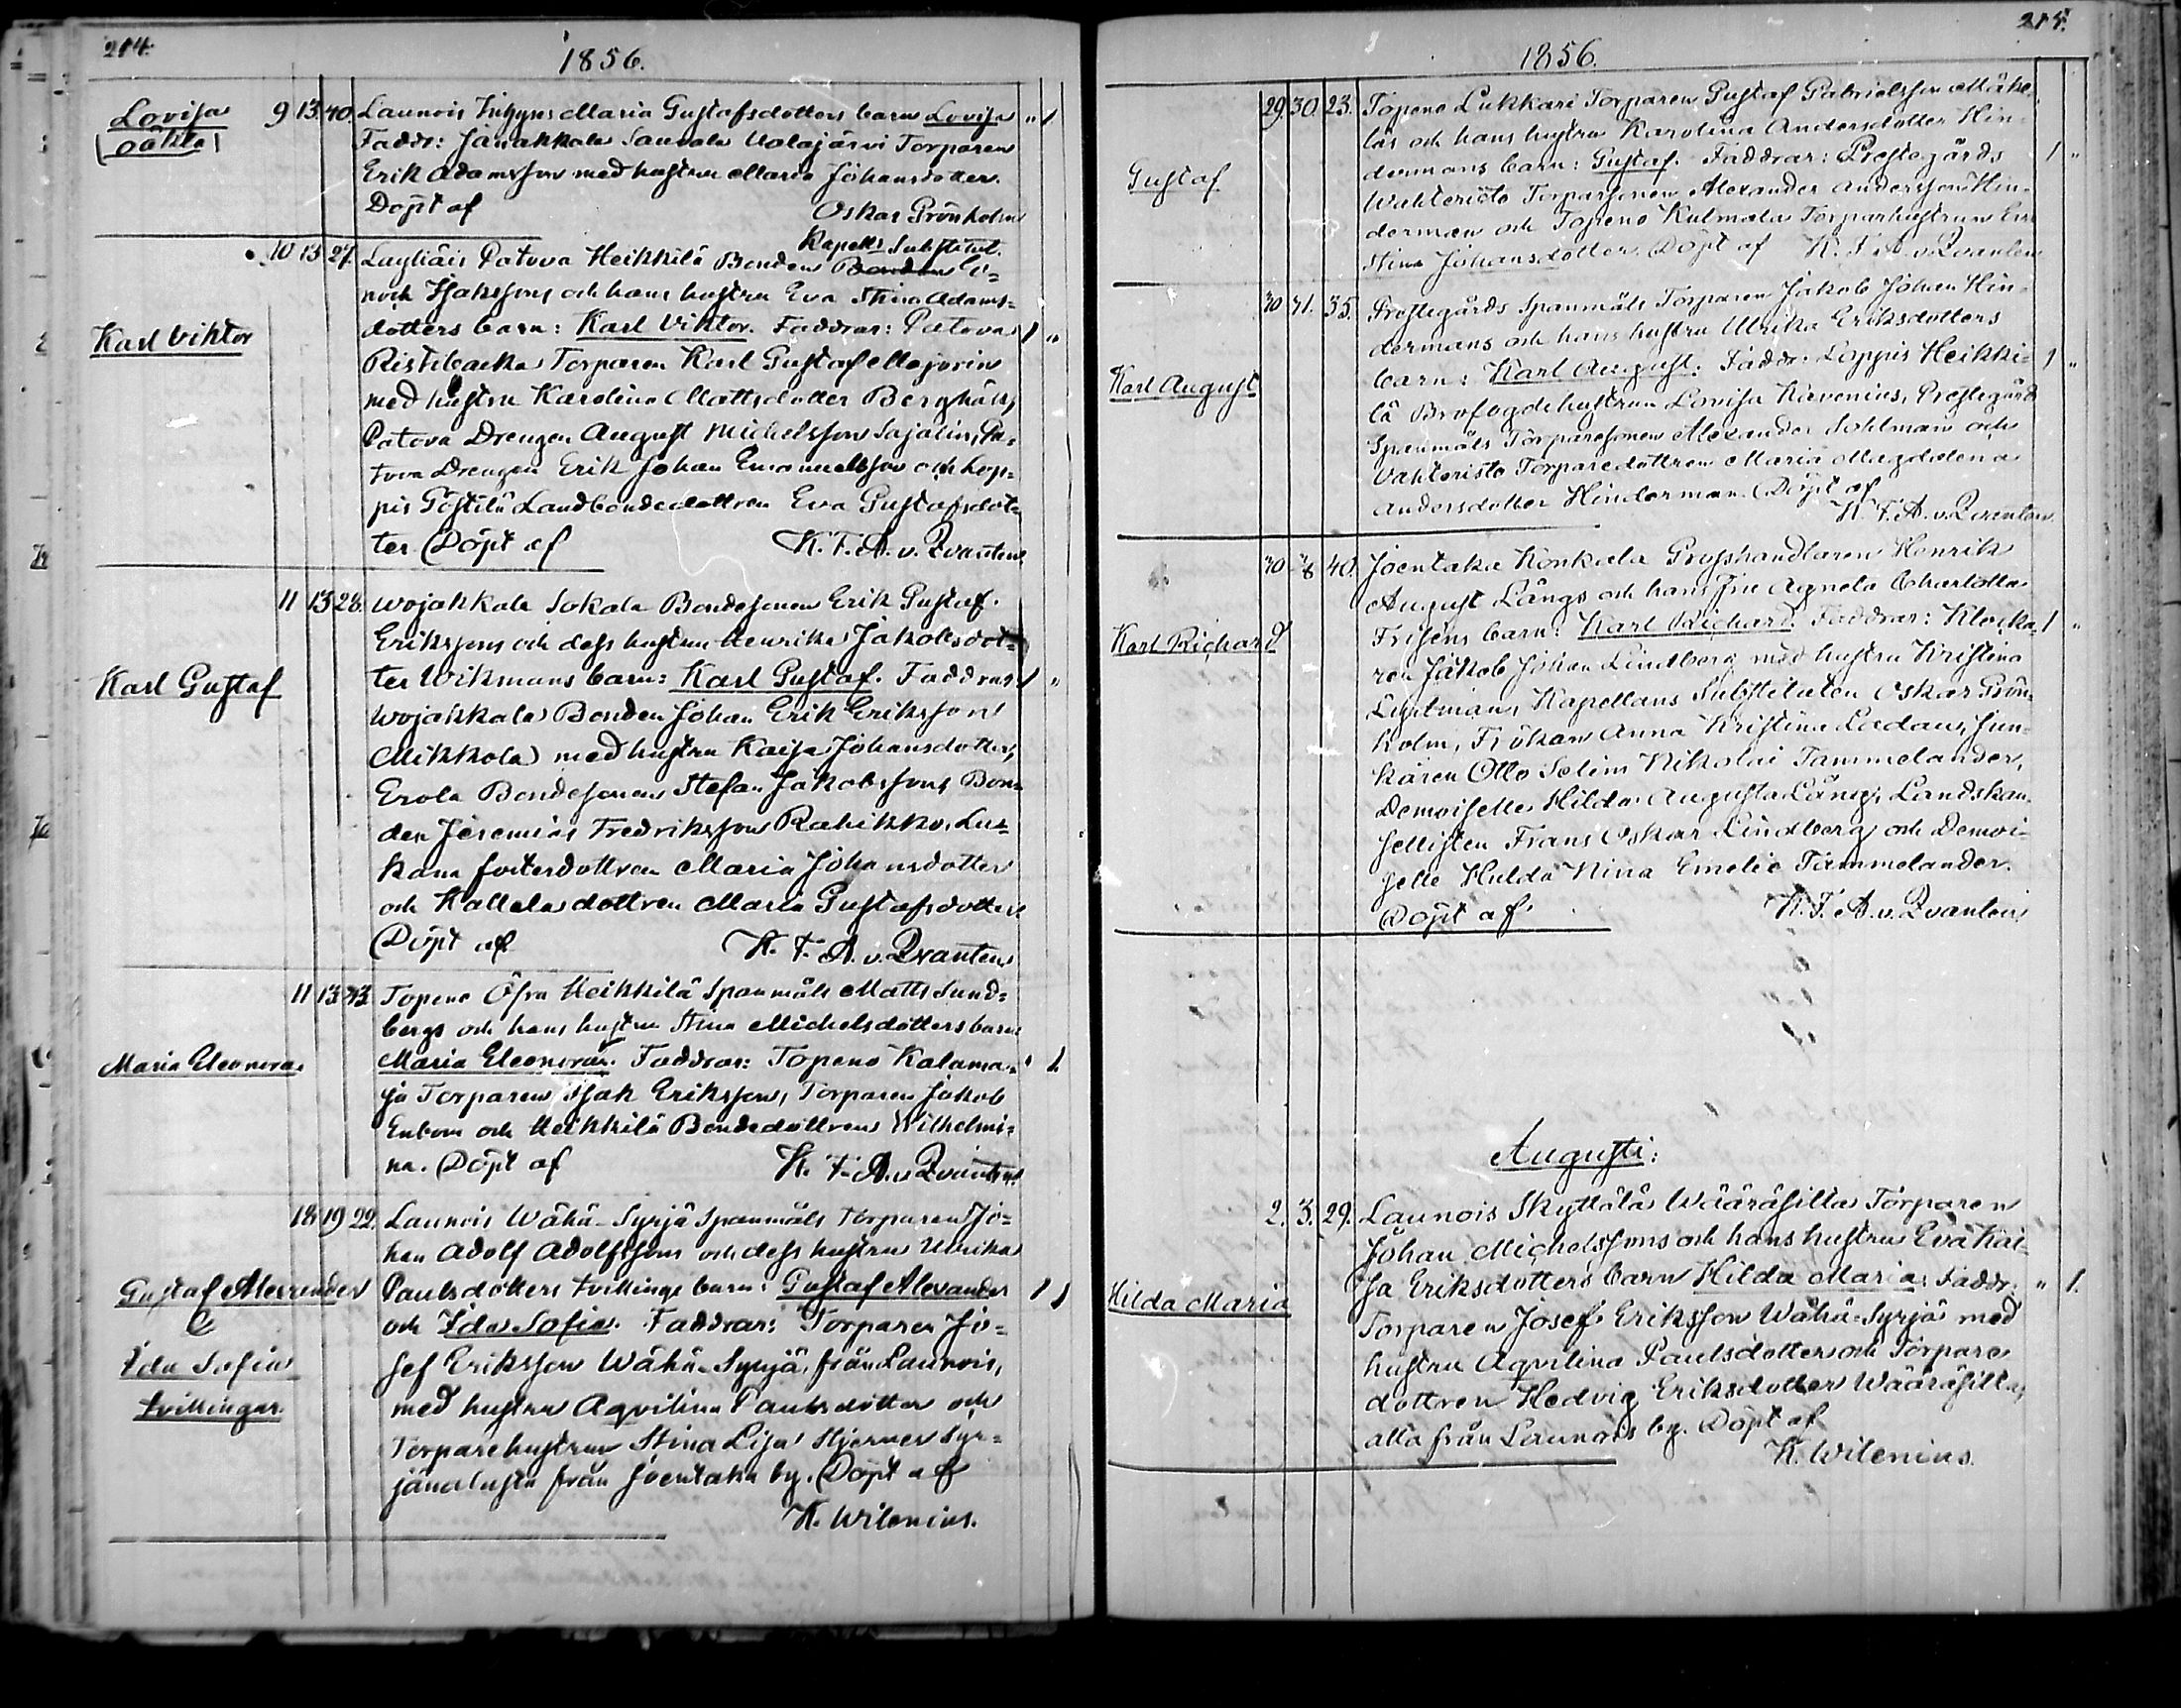 214.
1856.
Lovisa
oäkta
9 13. 40. Launois Inhyses Maria Gustafsdotters barn Lovisa " 1
Faddr: Janakkala Sauvala Valajärvi Torparen
Erik Adamsson med hustru Maria Johansdotter.
Döpt af Oskar Grönholm
Kapells Substitut.
Karl Viktor
10 13 27. Lagliäis Patova Heikkilä Bonden Bonden
Isakssons och hans hustru Eva Stina Adams=
dotters barn: Karl Viktor. Faddrar: Patova 1 "
Ristibacka Torparen Karl Gustaf Majorin
med hustru Karolina Mattsdotter Berghäll,
Patova Drengen August Michelsson Sajalin, Pa=
tova Drengen Erik Johan Emanuelsson och Lop=
pis Göstilä Landbondedottren Eva Gustafsdot=
ter. Döpt af K. F. A. v. Qvanten
Karl Gustaf
11 13 28. Wojakkala Sokala Bondesonen Erik Gustaf
Erikssons och dess hustru Henrika Jakobsdot=
ter Wikmans barn: Karl Gustaf. Faddrar: 1 "
Wojakkala Bonden Johan Erik Eriksson
Mikkola med hustru Kaisa Johansdotter,
Erola Bondesonen Stefan Jakobsson, Bon=
den Jeremias Fredriksson Rahikko,
fosterdottren Maria Johansdotter
och Kallela dottren Maria Gustafsdotter
Döpt af K. F. A. v. Qvanten
Maria Eleonora.
11 13 43. Topeno Öfra Heikkilä Spanmåls Matts Sund=
bergs och hans hustru Stina Michelsdotters barn
Maria Eleonora. Faddrar: Topeno Kalama= " 1.
ja Torparen Isak Eriksson, Torparen Jakob
Enbom och Heikkilä Bondedottren Wilhelmi=
na. Döpt af K. F. A. v. Qvanten
Gustaf Alexander
&
Ida Sofia
tvillingar.
18. 19 22. Launois Wähä-Syrjä Spanmåls Torparen Jo=
han Adolf Adolfssons och dess hustru Ulrika
Paulsdotters tvillinge barn: Gustaf Alexander 1 1
och Ida Sofia. Faddrar: Torparen Jo=
sef Eriksson Wähä-Syrjä, från Launois,
med hustru Aqvilina Paulsdotter och
Torparehustrun Stina Lisa Hjerner Syr=
jänalusta från Joentaka by. Döpt af
K. Wilenius.
215.
1856.
Gustaf
29. 30. 23. Topeno Lukkari Torparen Gustaf Gabrielsson Mäke=
läs och hans hustru Karolina Andersdotter Hin=
dermans barn: Gustaf. Faddrar: Prestegårds 1 "
Wahteristo Torparsonen Alexander Andersson Hin=
derman och Topeno Kulmala Torparhustrun Ern
stina Johansdotter. Döpt af K. F. A. v. Qvanten
Karl August
30 31. 35. Prestegårds Spanmåls Torparen Jakob Johan Hin=
dermans och hans hustru Ulrika Eriksdotters
barn: Karl August: Faddr: Loppis Heikki= 1 "
lä Brofogdehustrun Lovisa Kavenius, Prestegård
Spanmåls Torparesonen Alexander Sohlman och
Vahteristo Torparedottren Maria Magdalena
Andersdotter Hinderman. Döpt af
K. F. A. v. Qvanten
Karl Richard
30 3/8 40. Joentaka Konkala Grosshandlaren Henrik
August Långs och hans Fru Agneta Charlotta
Frisens barn: Karl Richard. Faddrar: Klocka= 1 "
ren Jakob Johan Lindberg med hustru Kristina
Lustman, Kapellans Substituten Oskar Grön=
holm, Fröken Anna Kristina Ladau, Jun=
kären Otto Selim Nikolai Tammelander,
Demoiselle Hilda Augusta Lång, Landskan=
sellisten Frans Oskar Lindberg och Demoi=
selle Hulda Nina Emelie Tammelander.
Döpt af K. F. A. v. Qvanten
Augusti:
Hilda Maria
2. 3. 29. Launois Skyttälä Wääräsilta Torparen
Johan Michelssons och hans hustru Eva Kai=
sa Eriksdotters barn Hilda Maria: Faddr: " 1.
Torparen Josef Eriksson Wähä-Syrjä med
hustru Aqvilina Paulsdotter och Torpare
dottren Hedvig Eriksdotter Wääräsilta,
alla från Launois by. Döpt af
K. Wilenius.